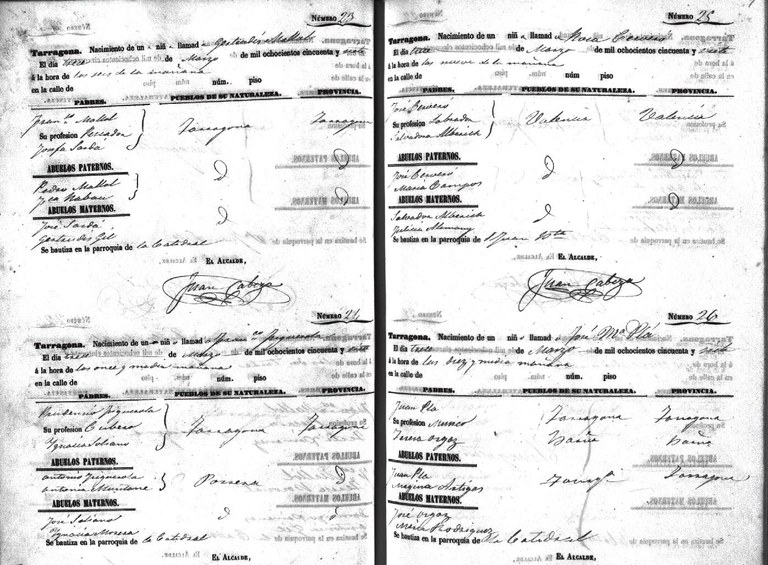 NÚMERO 23
Tarragona. Nacimiento de un niñ a llamad a Gertrudis Mallol
El dia trece de Marzo de mil ochocientos cincuenta y siete
á la hora de las seis de la mañana
en la calle de núm. piso
PADRES. PUEBLOS DE SU NATURALEZA. PROVINCIA.
Juan Mallol
Su profesion Pescador Tarragona Tarragona
Josefa Sardá
ABUELOS PATERNOS.
Pedro Mallol
ABUELOS MATERNOS.
José Sardá
Gertrudis Gil
Se bautiza en la parroquia de la Catedral
EL ALCALDE,
Juan Cabeza
NÚMERO 24
Tarragona. Nacimiento de un niñ o llamad o
El dia trece de Marzo de mil ochocientos cincuenta y siete
á la hora de las once y media mañana
en la calle de núm. piso
PADRES. PUEBLOS DE SU NATURALEZA. PROVINCIA.
Su profesion Cubero Tarragona Tarragona
Ignacia Solians
ABUELOS PATERNOS.
Antonio
Antonia Muntané
ABUELOS MATERNOS.
José Solians
Ignacia Morera
Se bautiza en la parroquia de la Catedral
EL ALCALDE,
NÚMERO 25
Tarragona. Nacimiento de un niñ a llamad a Rosa Cervera
El dia trece de Marzo de mil ochocientos cincuenta y siete
á la hora de las nueve de la mañana
en la calle de núm. piso
PADRES. PUEBLOS DE SU NATURALEZA. PROVINCIA.
José Cervera
Su profesion Labrador Valencia Valencia
Salvadora
ABUELOS PATERNOS.
José Cervera
Maria Campos
ABUELOS MATERNOS.
Salvador
Felicia Alemany
Se bautiza en la parroquia de S. Juan Bta
EL ALCALDE,
Juan Cabeza
NÚMERO 26
Tarragona. Nacimiento de un niñ o llamad o José Mª Plá
El dia trece de Marzo de mil ochocientos cincuenta y siete
á la hora de las diez y media mañana
en la calle de núm. piso
PADRES. PUEBLOS DE SU NATURALEZA. PROVINCIA.
Juan Pla Tarragona Tarragona
Su profesion
Teresa Orgaz
ABUELOS PATERNOS.
Juan Pla Tarragona
Artigas
ABUELOS MATERNOS.
José Orgaz
Maria Rodriguez
Se bautiza en la parroquia de la Catedral
EL ALCALDE,